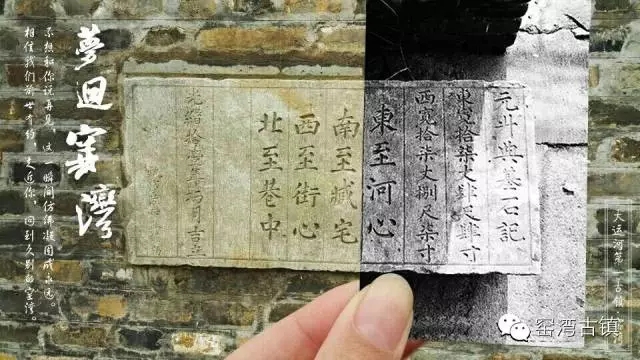 夢迴窰灣
不想和你说再见，这一瞬间仿佛凝固成永远。
相信我们前世有约，走近你，回到久别的窑湾。
元升典基石記
東寬拾柒丈肆尺肆寸
西寬拾柒丈捌尺柒寸
東至河心
南至臧宅
西至街心
北至巷中
光緒拾 年 月吉立
大运河第一古镇
窑湾古镇